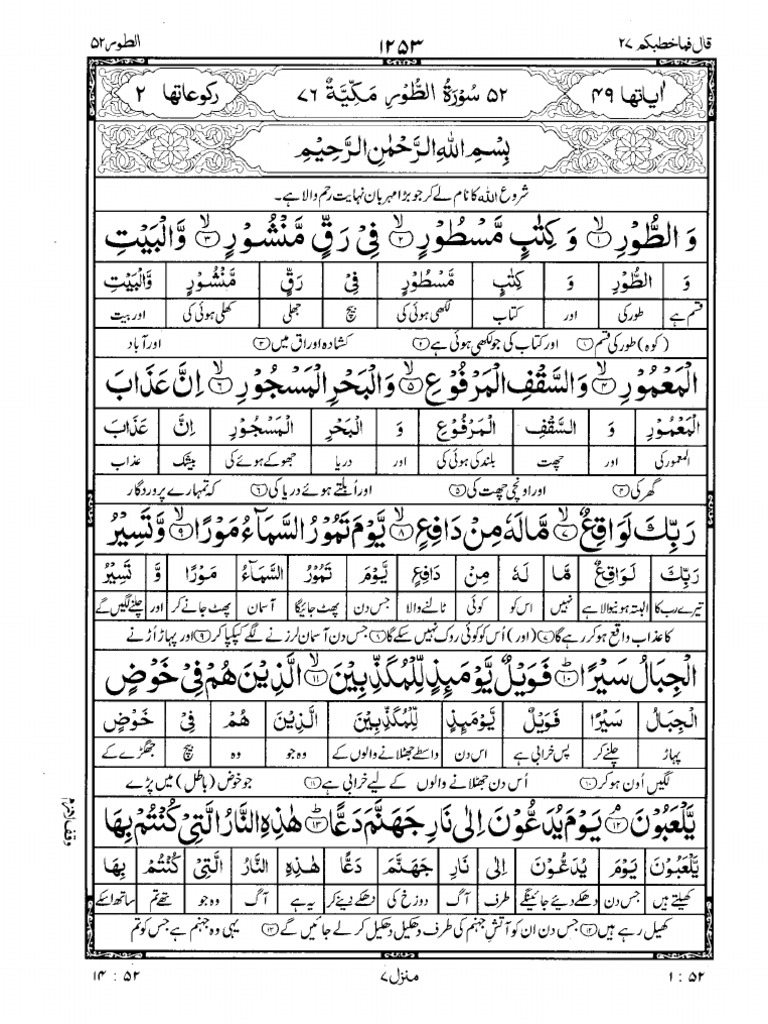 قال فماخطبکم ۲۷ ۱۲۵۳ الطور ۵۲
اٰیاتها ۴۹ ۵۲ سُوْرَةُ الطُّوْرِ مَكِّيَّةٌ ۷۶ رکوعاتها ۲
بِسْمِ اللهِ الرَّحْمٰنِ الرَّحِيْمِ
شروع الله کا نام لے کر جو بڑا مہربان نہایت رحم والا ہے۔
وَ الطُّوْرِ ۙ۱ وَ كِتٰبٍ مَّسْطُوْرٍ ۙ۲ فِيْ رَقٍّ مَّنْشُوْرٍ ۙ۳ وَّالْبَيْتِ
وَ الطُّوْرِ وَ كِتٰبٍ مَّسْطُوْرٍ فِيْ رَقٍّ مَّنْشُوْرٍ وَّالْبَيْتِ
قسم ہے طور کی اور کتاب لکھی ہوئی کی بیچ جھلی کھلی ہوئی کی اور بیت
(کوہ) طور کی قسم ۱ اور کتاب کی جو لکھی ہوئی ہے ۲ کشادہ اوراق میں ۳ اور آباد
الْمَعْمُوْرِ ۙ۴ وَالسَّقْفِ الْمَرْفُوْعِ ۙ۵ وَالْبَحْرِ الْمَسْجُوْرِ ۙ۶ اِنَّ عَذَابَ
الْمَعْمُوْرِ وَ السَّقْفِ الْمَرْفُوْعِ وَ الْبَحْرِ الْمَسْجُوْرِ اِنَّ عَذَابَ
المعمور کی اور چھت بلند کی ہوئی کی اور دریا جھوکے ہوئے کی بیشک عذاب
گھر کی ۴ اور اونچی چھت کی ۵ اور اُبلتے ہوئے دریا کی ۶ کہ تمہارے پروردگار
رَبِّكَ لَوَاقِعٌ ۙ۷ مَّا لَهٗ مِنْ دَافِعٍ ۙ۸ يَّوْمَ تَمُوْرُ السَّمَآءُ مَوْرًا ۙ۹ وَّتَسِيْرُ
رَبِّكَ لَوَاقِعٌ مَّا لَهٗ مِنْ دَافِعٍ يَّوْمَ تَمُوْرُ السَّمَآءُ مَوْرًا وَّ تَسِيْرُ
تیرے رب کا البتہ ہونیوالا ہے نہیں اس کو کوئی ٹالنے والا جس دن پھٹ جائیگا آسمان پھٹ جانے کر اور چلنے لگیں گے
کا عذاب واقع ہو کر رہے گا ۷ (اور) اُس کو کوئی روک نہیں سکے گا ۸ جس دن آسمان لرزنے لگے کپکپا کر ۹ اور پہاڑ اُڑنے
الْجِبَالُ سَيْرًا ؕ۱۰ فَوَيْلٌ يَّوْمَىِٕذٍ لِّلْمُكَذِّبِيْنَ ۙ۱۱ الَّذِيْنَ هُمْ فِيْ خَوْضٍ
الْجِبَالُ سَيْرًا فَوَيْلٌ يَّوْمَىِٕذٍ لِّلْمُكَذِّبِيْنَ الَّذِيْنَ هُمْ فِيْ خَوْضٍ
پہاڑ چلنے کر پس خرابی ہے اس دن واسطے جھٹلانے والوں کے وہ جو وہ بیچ جھگڑے کے
لگیں اُون ہو کر ۱۰ اُس دن جھٹلانے والوں کے لیے خرابی ہے ۱۱ جو خوض (باطل) میں پڑے
يَّلْعَبُوْنَ ۘ۱۲ يَوْمَ يُدَعُّوْنَ اِلٰى نَارِ جَهَنَّمَ دَعًّا ؕ۱۳ هٰذِهِ النَّارُ الَّتِيْ كُنْتُمْ بِهَا
يَّلْعَبُوْنَ يَوْمَ يُدَعُّوْنَ اِلٰى نَارِ جَهَنَّمَ دَعًّا هٰذِهِ النَّارُ الَّتِيْ كُنْتُمْ بِهَا
کھیلتے ہیں جس دن دھکے دیئے جائینگے طرف آگ دوزخ کی دھکے دینے کر یہ ہے آگ وہ جو تھے تم ساتھ اسکے
کھیل رہے ہیں ۱۲ جس دن ان کو آتش جہنم کی طرف دھکیل دھکیل کر لے جائیں گے ۱۳ یہی وہ جہنم ہے جس کو تم
۵۲ : ۱ منزل ۷ ۵۲ : ۱۴